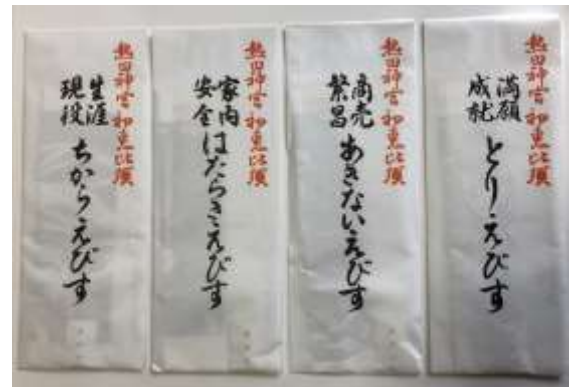 熱田神宮 初恵比須
満願成就 とりえびす
熱田神宮 初恵比須
商売繁昌 あきないえびす
熱田神宮 初恵比須
家内安全 はたらきえびす
熱田神宮 初恵比須
生涯現役 ちからえびす